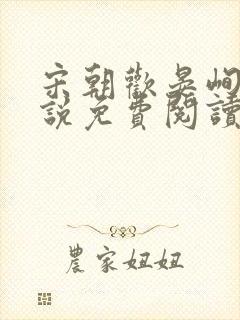 宋朝歡晏峋
說免費閱讀
農家妞妞